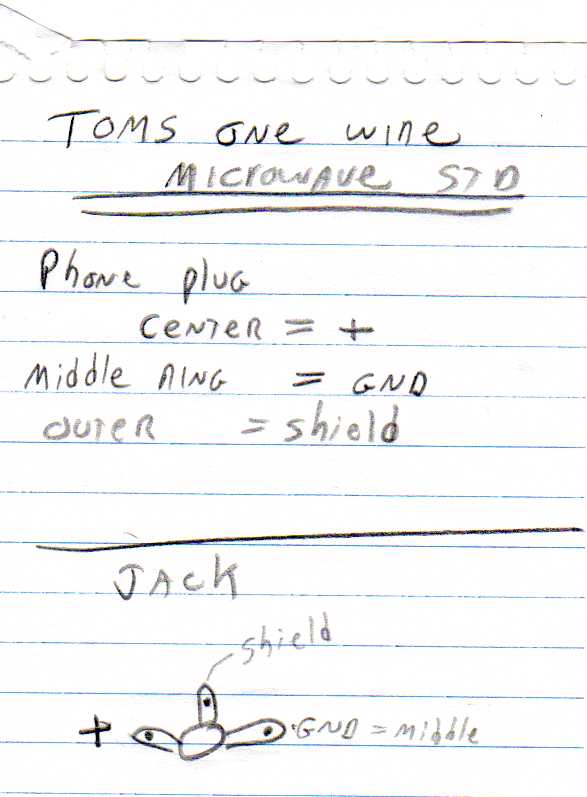 TOMS ONE WIRE
MICROWAVE STD
Phone plug
CENTER = +
Middle RING = GND
OUTER = shield
JACK
shield
+ GND = Middle